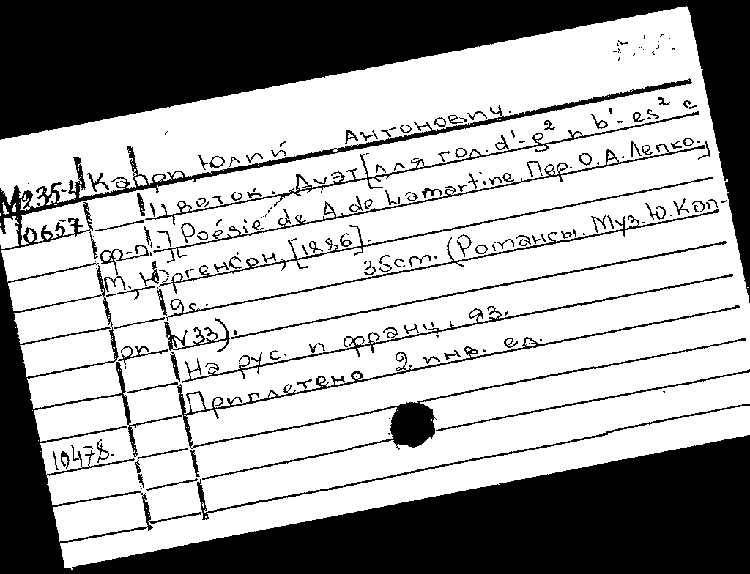 М235-4 Капри, Юлий Антонович.
10657 Цветок. Дуэт [для гол. d'-g² и b'-es² с
ф-п.] [Poésie de A. de Lamartine. Пер. О.А. Лепко.]
М., Юргенсон, [1886].
9с. 35см. (Романсы. Муз. Ю. Кап-
ри N33).
На рус. и франц. яз.
Приплетено 2 инв. ед.
10478.